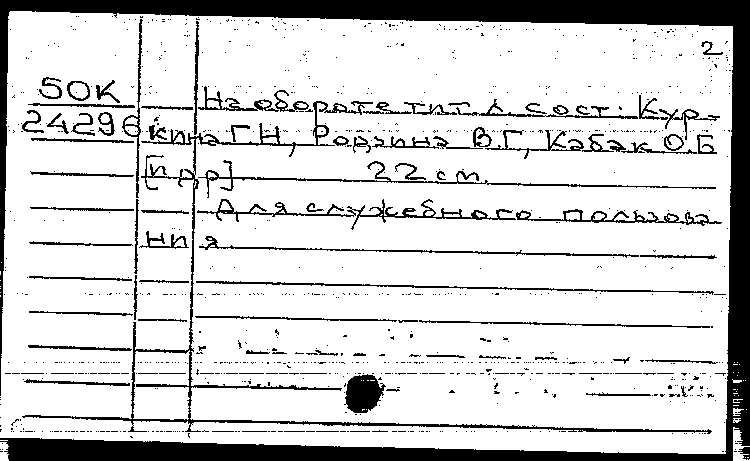 2
50К На обороте тит. л. сост. Кур-
24296 кина Г.Н., Родзина В.Г., Кабак О.Б
[и др] 22 см.
Для служебного пользова
ния.